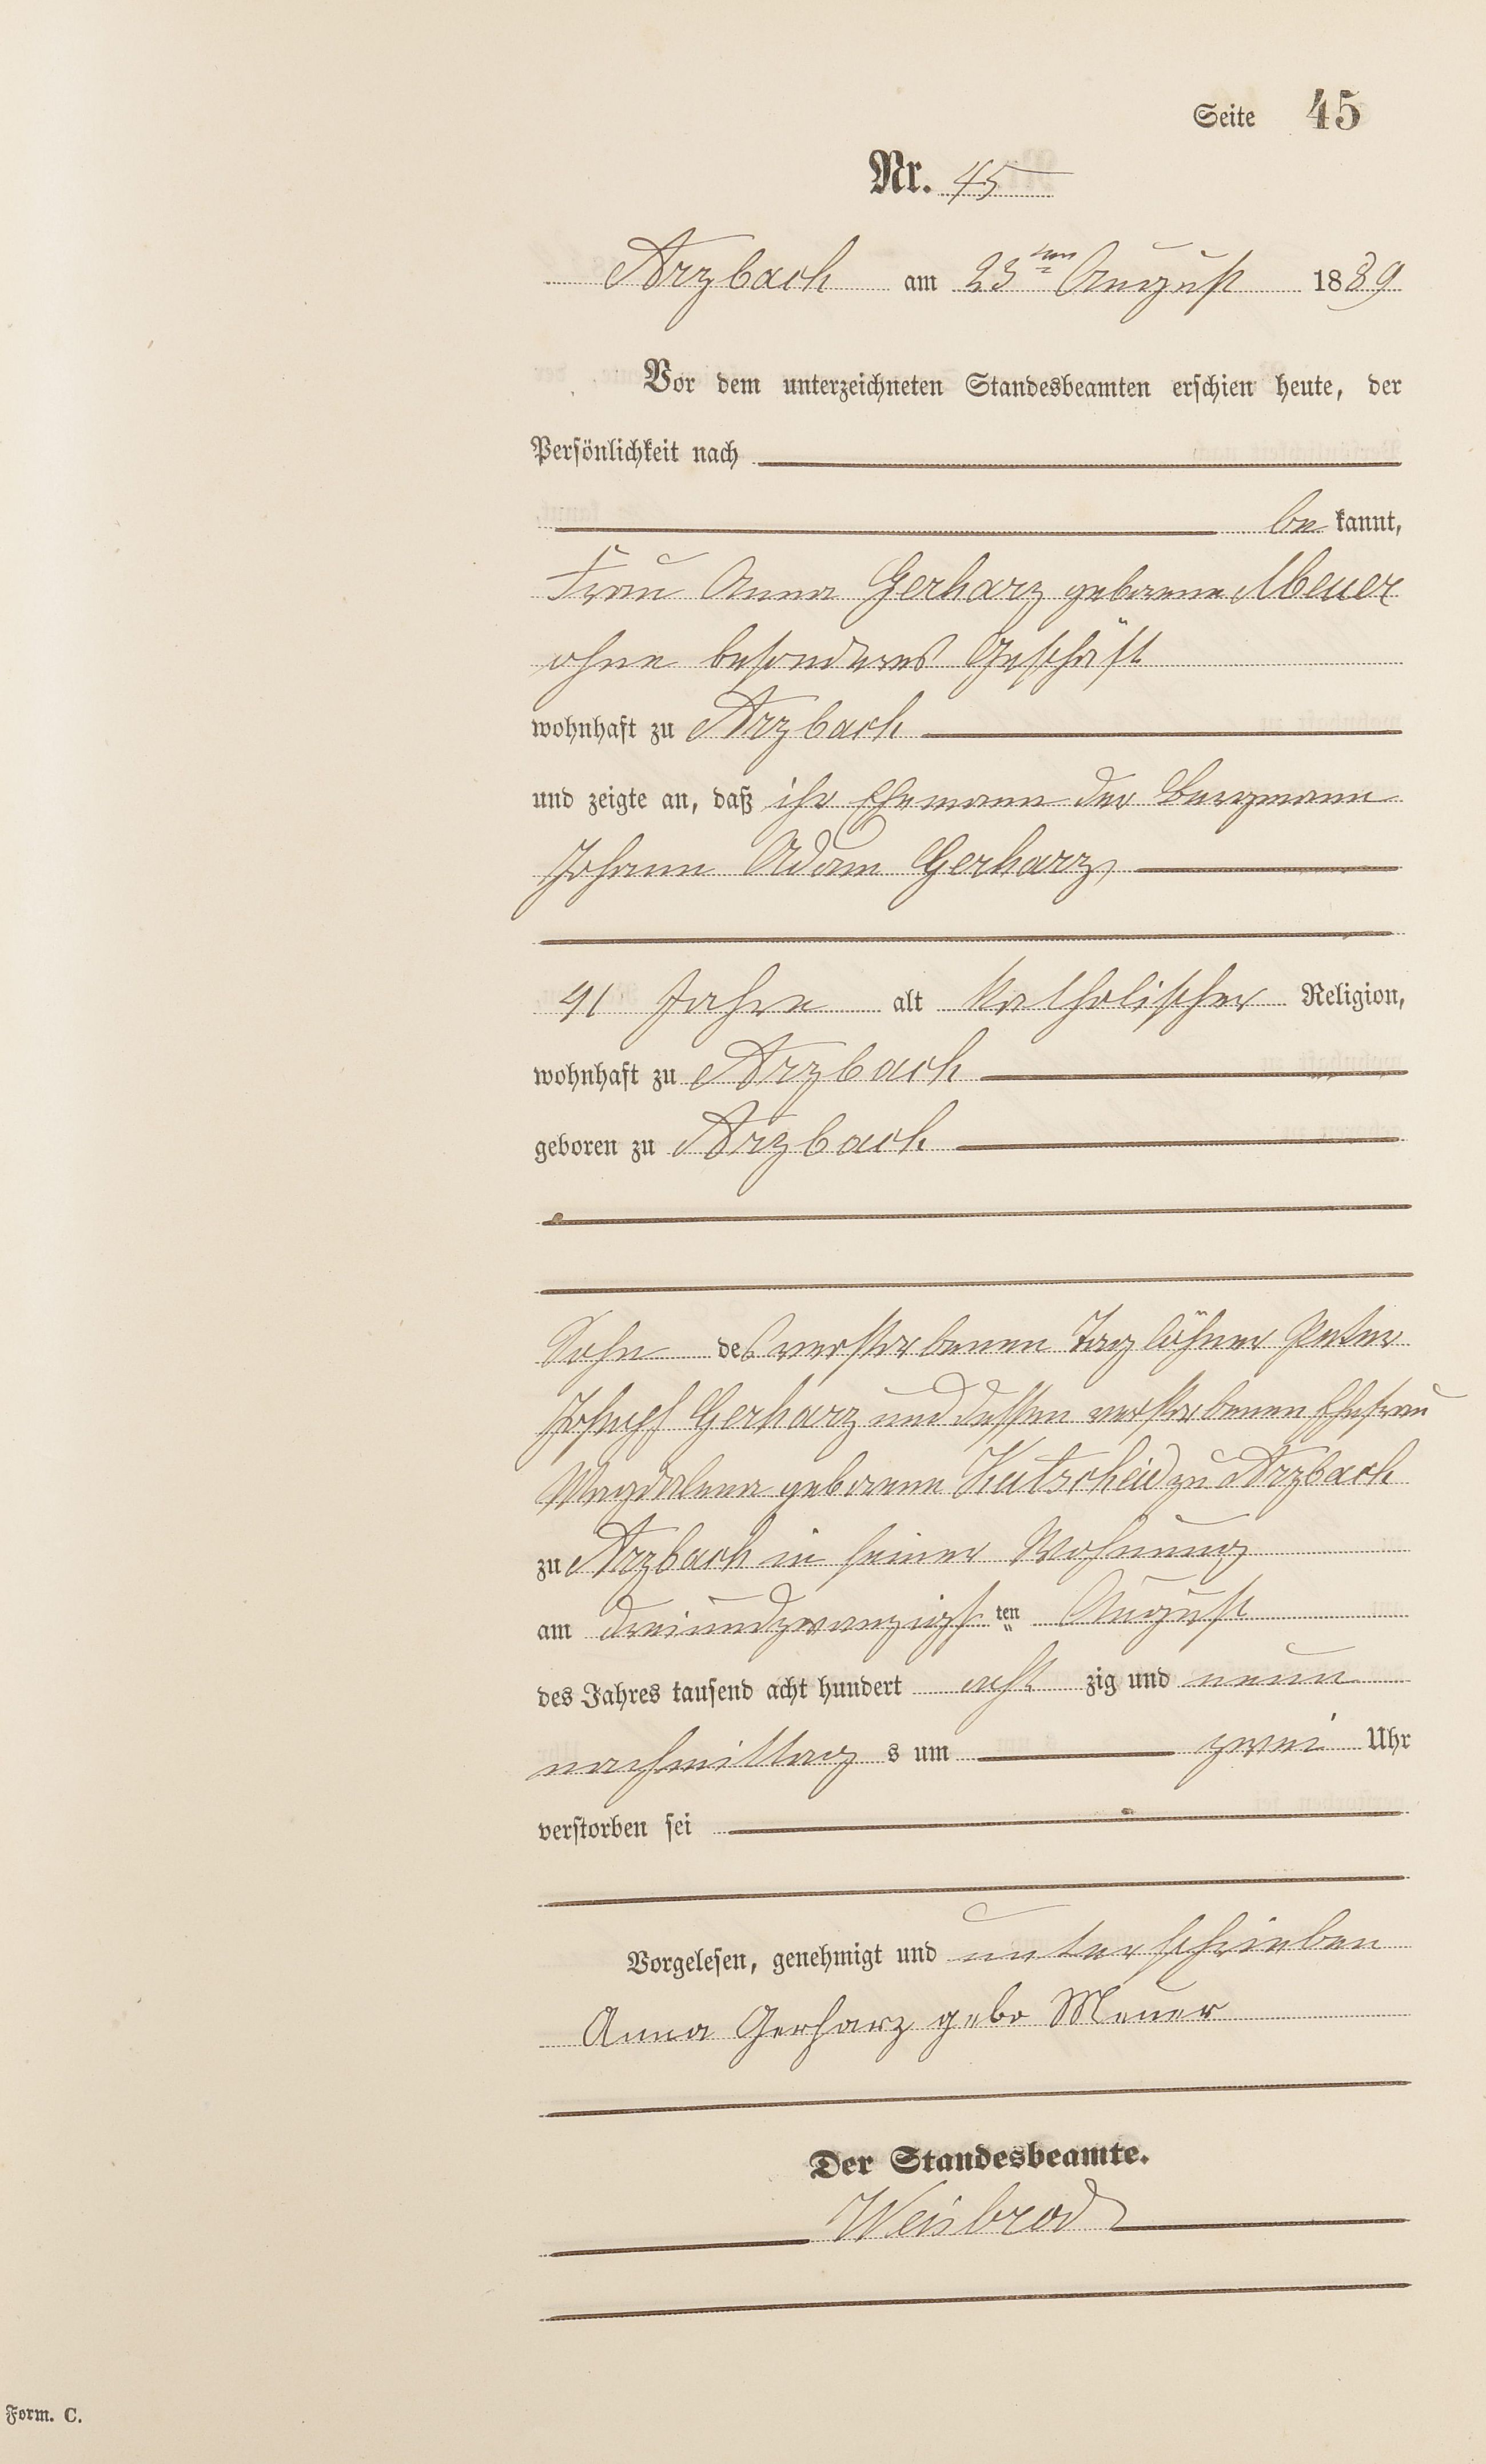 Seite 45
Nr. 45
Arzbach am 23ten August 1889
Vor dem unterzeichneten Standesbeamten erschien heute, der
Persönlichkeit nach
be kannt,
Frau Anna Gerharz geborene Meuer
ohne besonderes Geschäft
wohnhaft zu Arzbach
und zeigte an, daß ihr Ehemann der Bergmann
Johann Adam Gerharz,
41 Jahre alt katholischer Religion,
wohnhaft zu Arzbach
geboren zu Arzbach
Sohn des verstorbenen Taglöhner Peter
Joseph Gerharz und dessen verstorbenen Ehefrau
Magdalena geborene Kutscheid zu Arzbach
zu Arzbach in seiner Wohnung
am dreiundzwanzigsten August
des Jahres tausend acht hundert acht zig und neun
nachmittag s um zwei Uhr
verstorben sei
Vorgelesen, genehmigt und unterschrieben
Anna Gerharz gebo Meuer
Der Standesbeamte.
Weisbrod
Form. C.